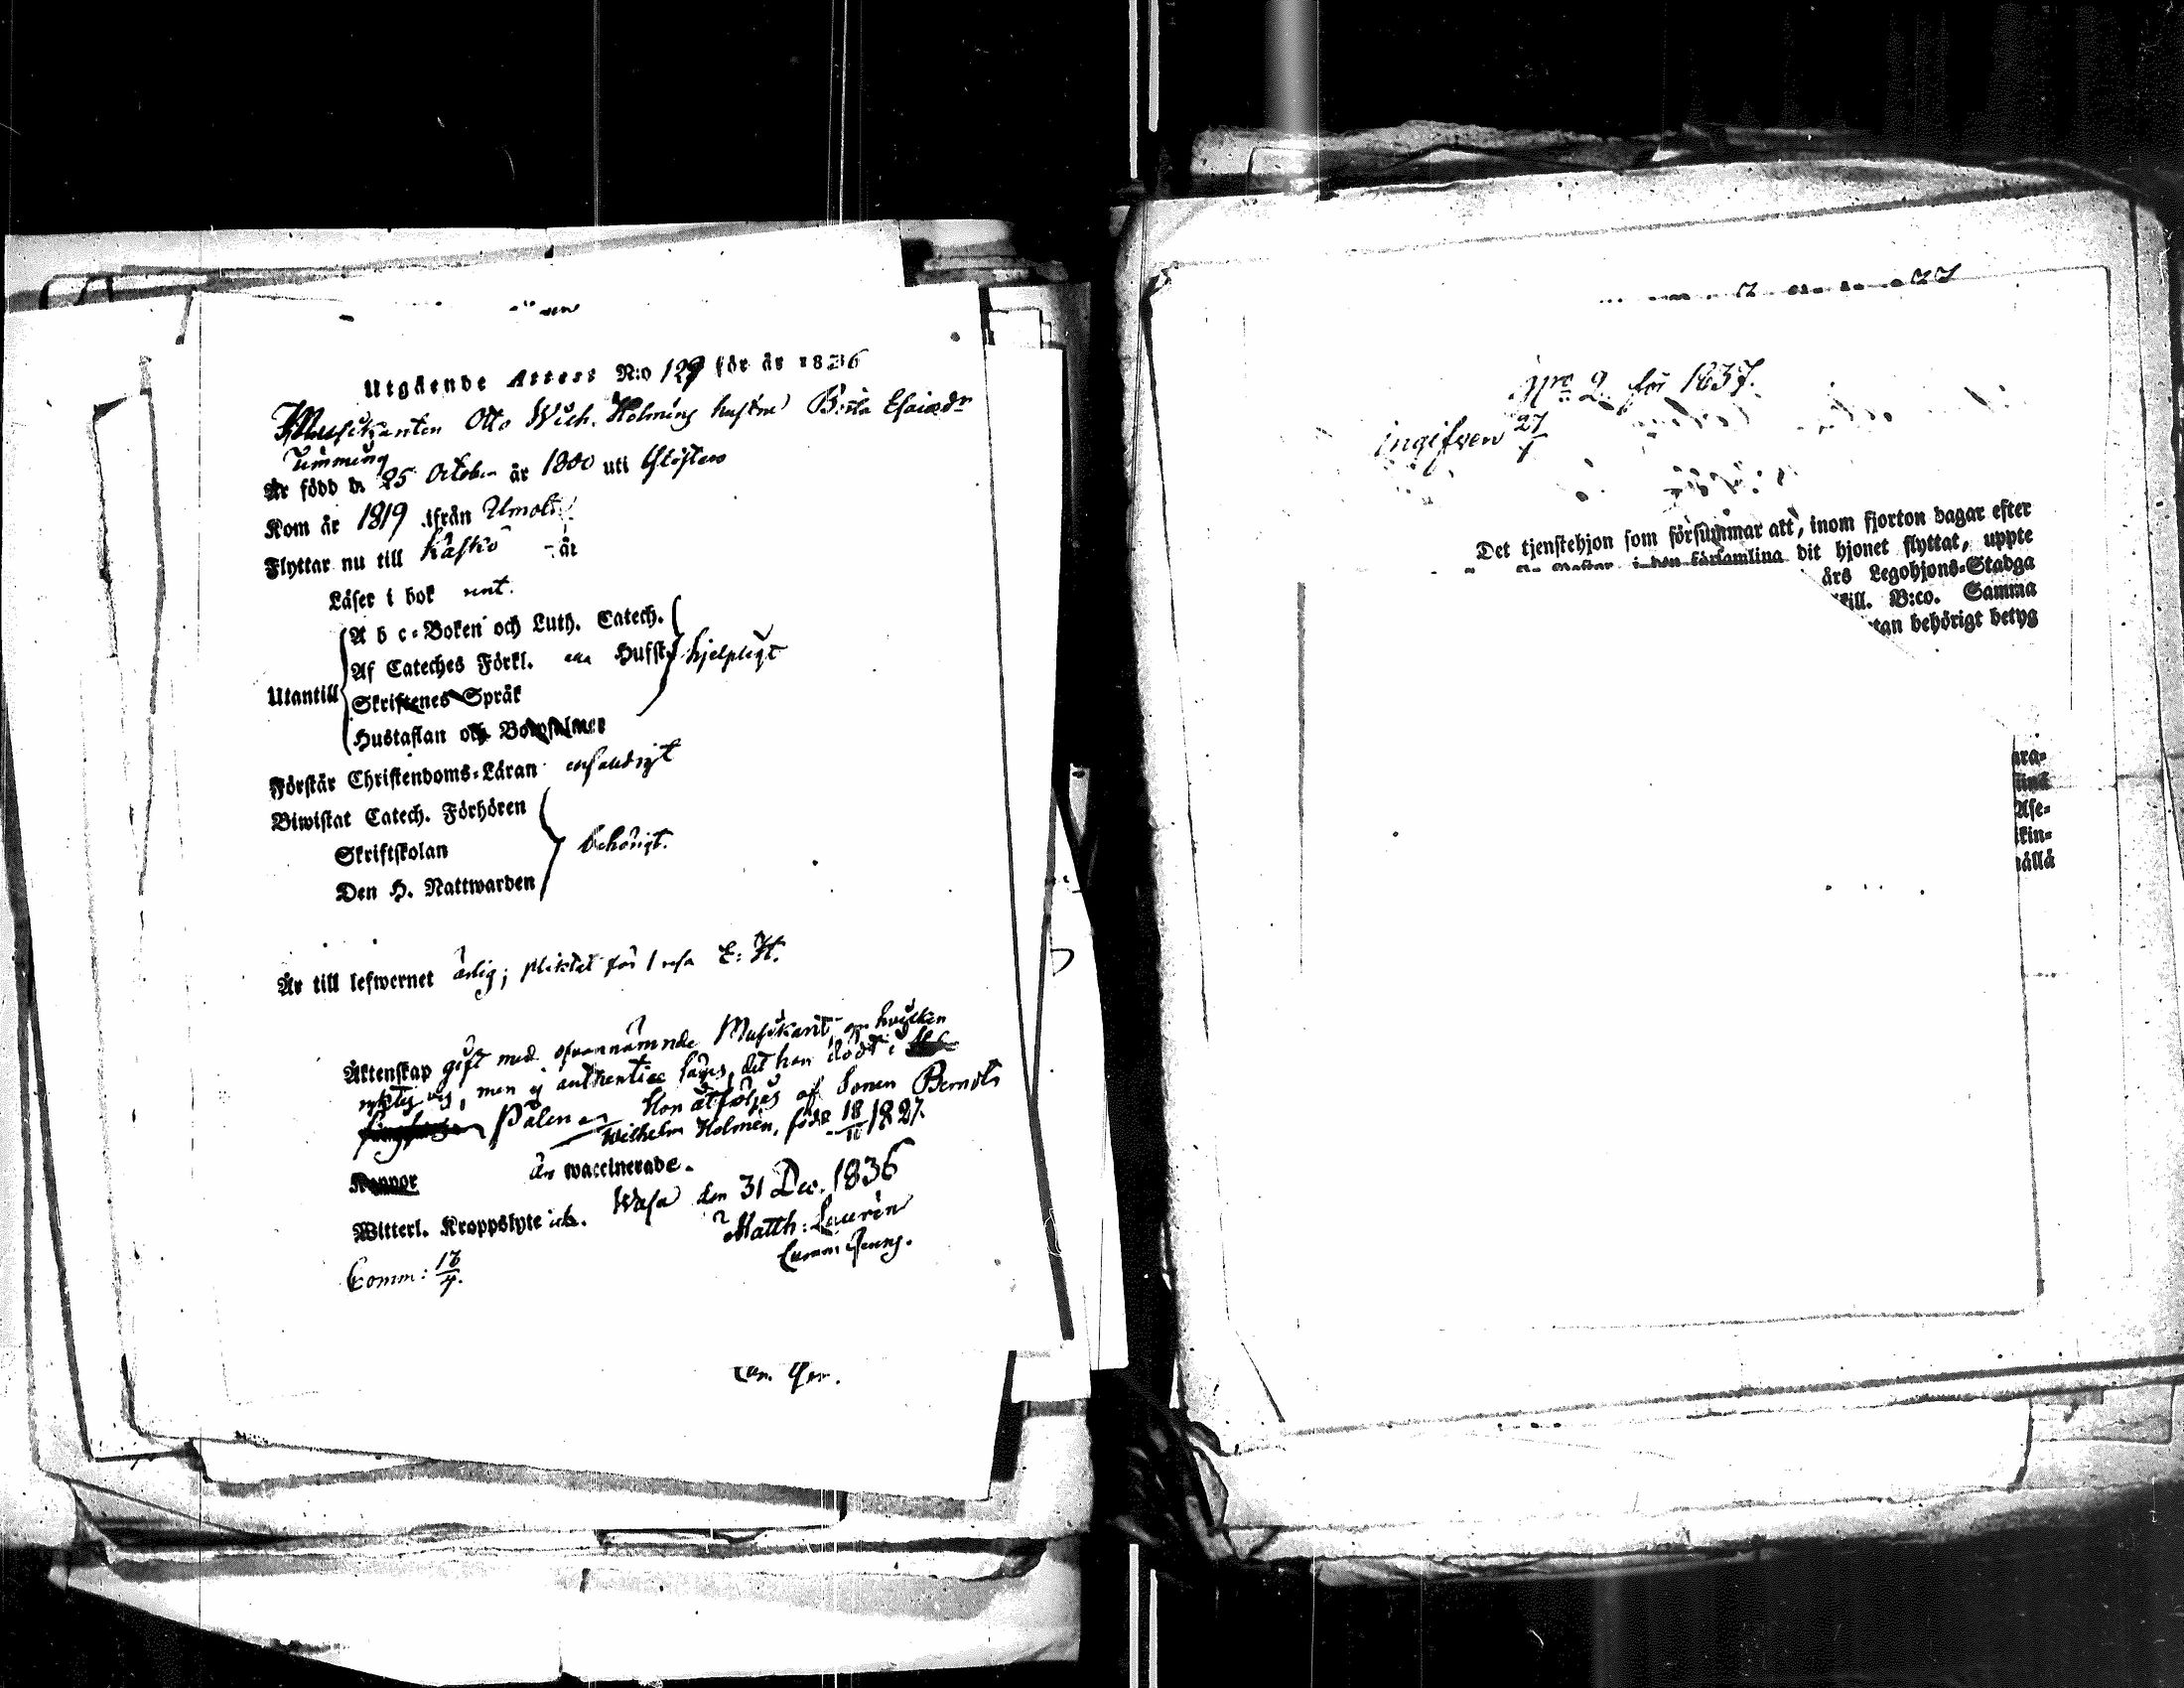 Utgående Attest N:o 129 för år 1836
Musikanten Otto Wilh. Holming hustru Brita Esaiædr
Timming
Är född d. 25 October år 1800 uti
Kom år 1819 ifrån Umolis
Flyttar nu till Kaskö år
Läser i bok rent.
A b c-Boken och Luth. Catech.
Af Cateches Förkl. Hufst. hjelpligt
Utantill
Skriftenes Språk
Hustaflan och Botpsalmer
Förstår Christendoms-Läran enfaldigt
Biwistat Catech. Förhören
Skriftskolan behörigt.
Den H. Nattwarden
Är till lefwernet ärlig; pliktat för 1 resa
Äktenskap gift med ofvannämnde Musikant, om hvilken
men ej authentice säges, det han dödt i
Pålen Hon åtföljes af Sonen Berndt
Wilhelm Holmén, född 18/11 1827.
Koppor än waccinerade.
Witterl. Kroppslyte ick. Wasa den 31 Dec. 1836
Matth: Laurén
Comm: 17/4.
N:ro 2 för 1837.
ingifven 27/1
Det tjenstehjon som försummar att, inom fjorton dagar efter
i den församling dit hjonet flyttat, uppte
års Legohjons-Stadga
skill. B:co. Samma
utan behörigt betyg